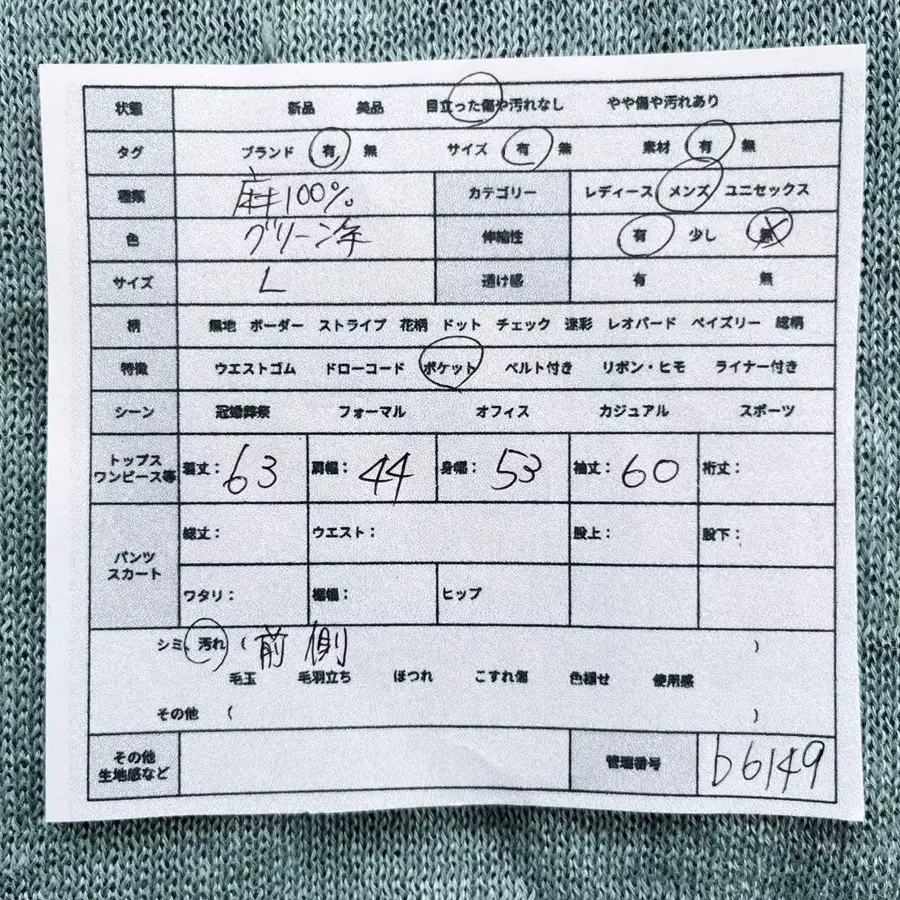 状態 新品 美品 目立った傷や汚れなし やや傷や汚れあり
タグ ブランド 有 無 サイズ 有 無 素材 有 無
種類 麻100% カテゴリー レディース メンズ ユニセックス
色 グリーン系 伸縮性 有 少し 無
サイズ L 透け感 有 無
柄 無地 ボーダー ストライプ 花柄 ドット チェック 迷彩 レオパード ペイズリー 総柄
特徴 ウエストゴム ドローコード ポケット ベルト付き リボン・ヒモ ライナー付き
シーン 冠婚葬祭 フォーマル オフィス カジュアル スポーツ
トップス
ワンピース等 着丈: 63 肩幅: 44 身幅: 53 袖丈: 60 裄丈:
パンツ
スカート 総丈: ウエスト: 股上: 股下:
ワタリ: 裾幅: ヒップ
シミ、汚れ ( 前側 )
毛玉 毛羽立ち ほつれ こすれ傷 色褪せ 使用感
その他 ( )
その他
生地感など 管理番号 b6149